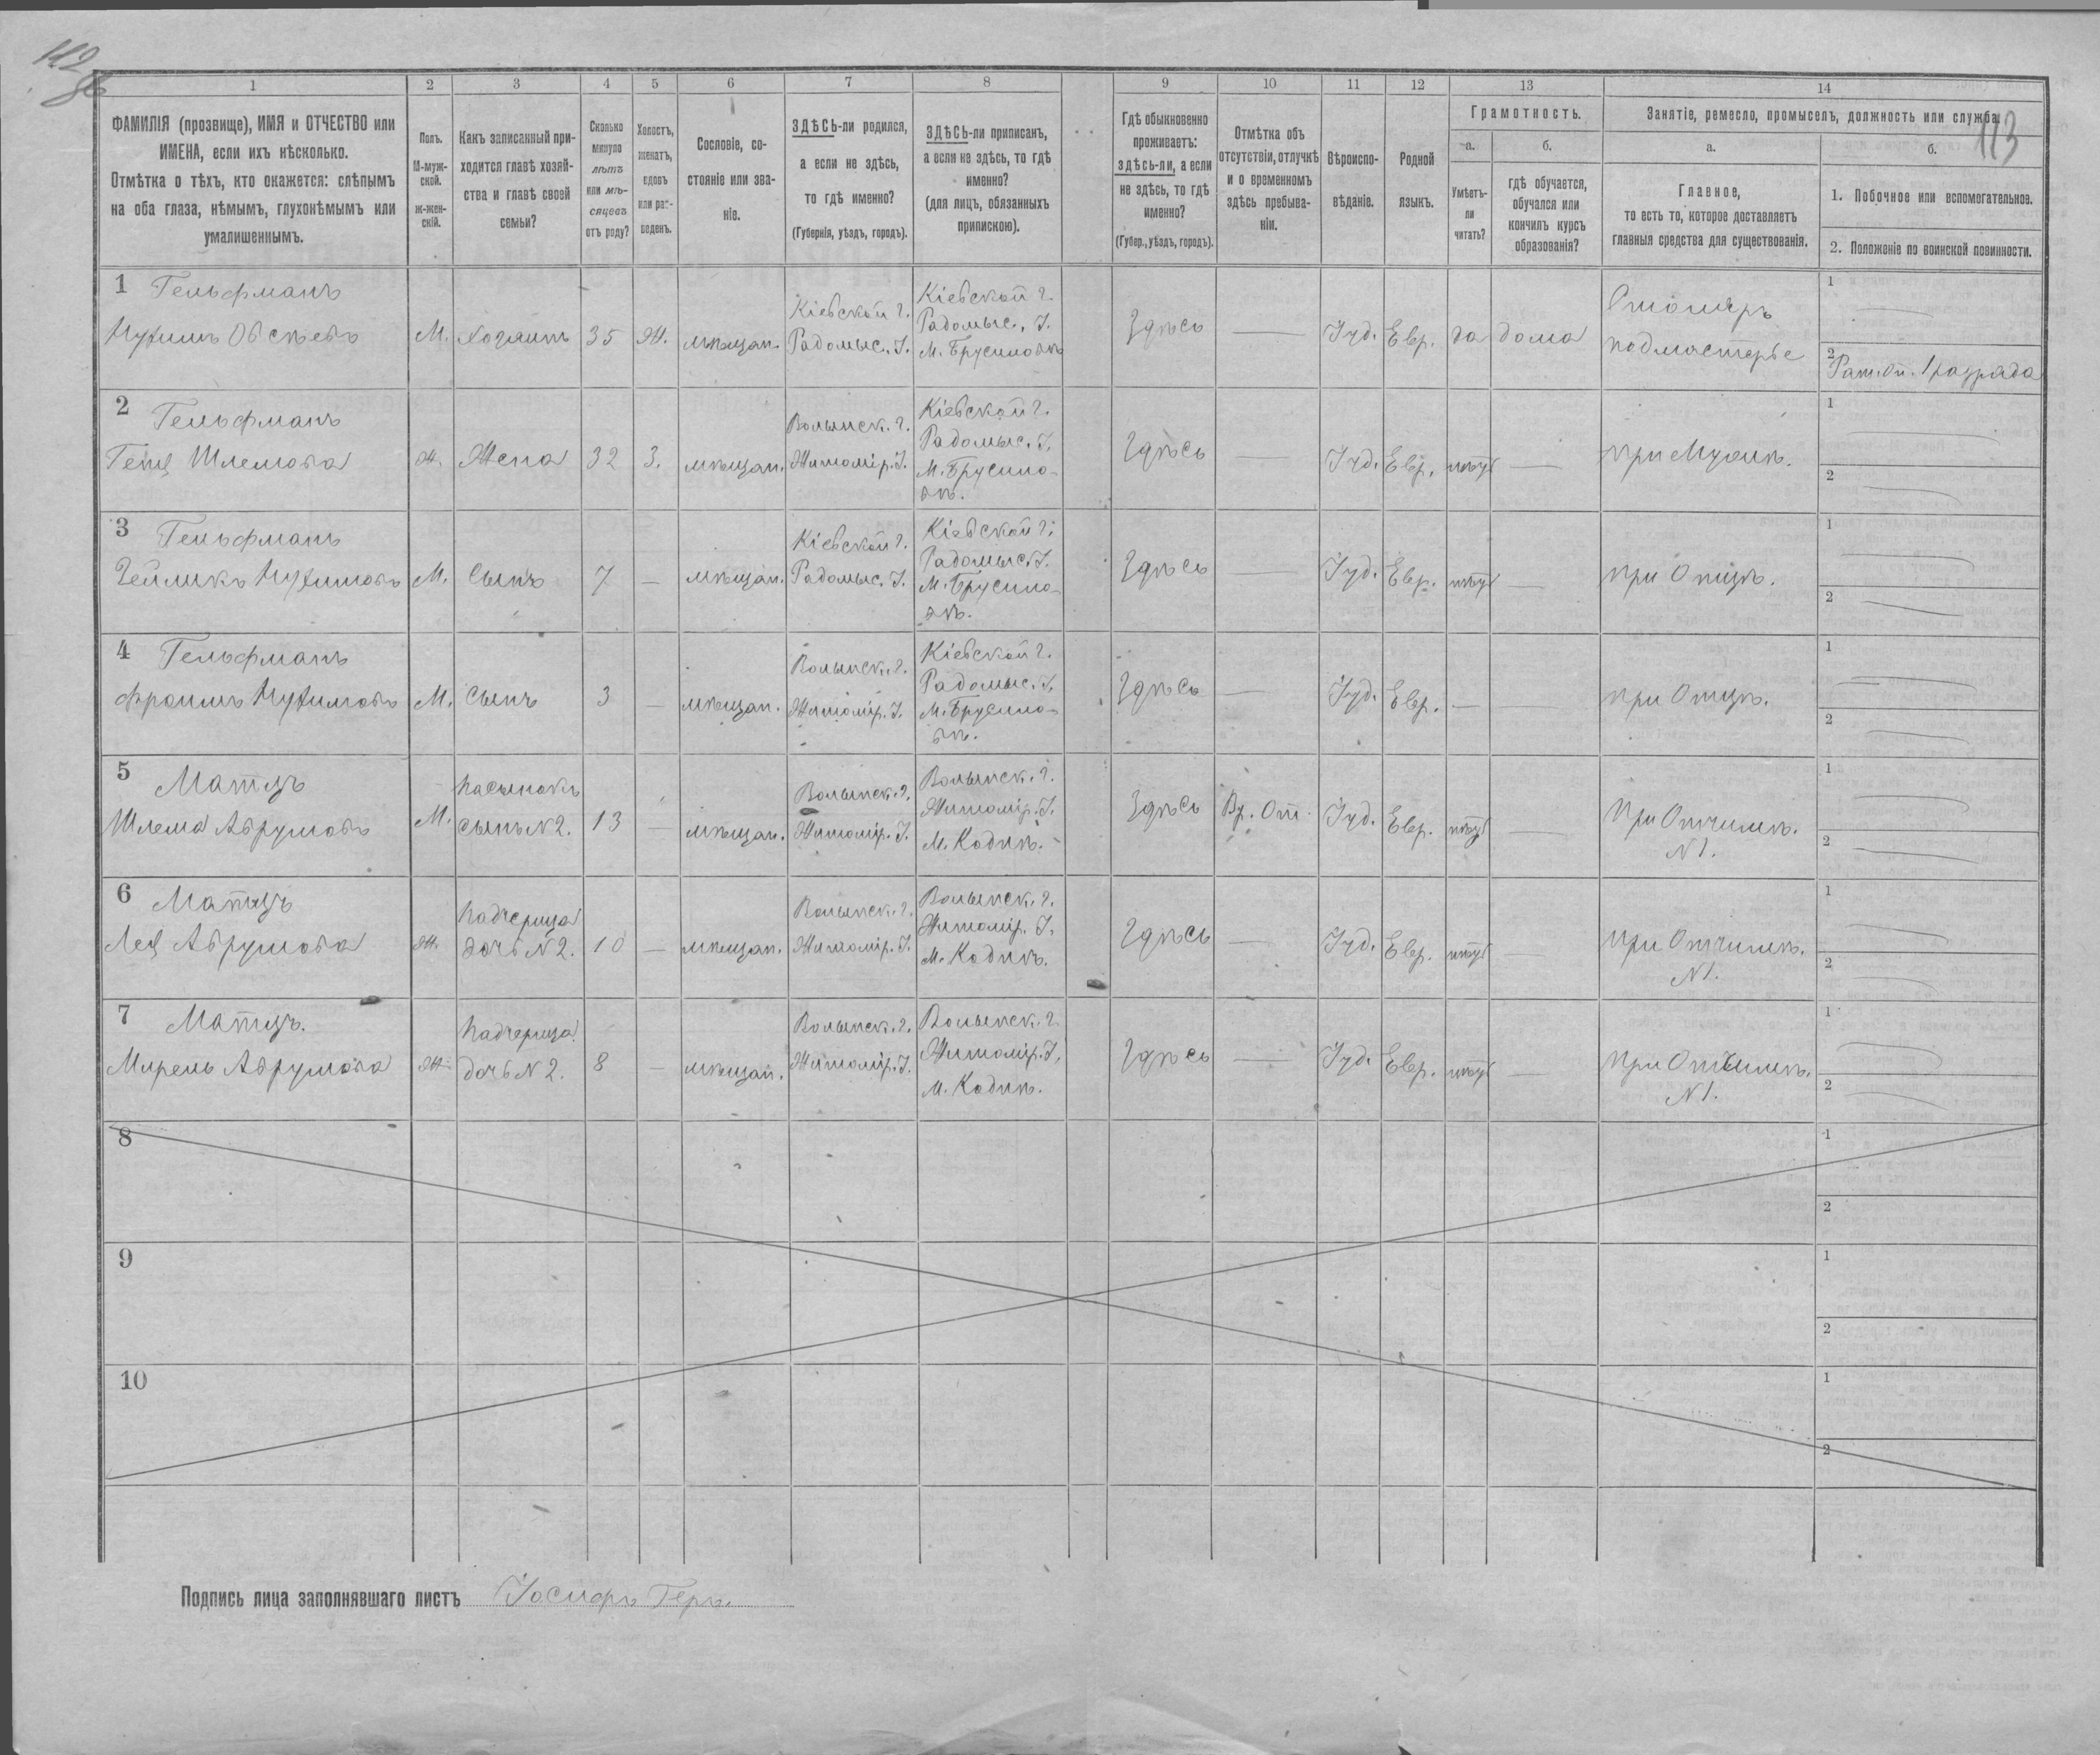 112
113
1 2 3 4 5 6 7 8 9 10 11 12 13 14
ФАМИЛІЯ (прозвище), ИМЯ и ОТЧЕСТВО или
ИМЕНА, если ихъ нѣсколько.
Отмѣтка о тѣхъ, кто окажется: слѣпымъ
на оба глаза, нѣмымъ, глухонѣмымъ или
умалишеннымъ.
Полъ.
М-муж-
ской.
ж-жен-
скій.
Какъ записанный при-
ходится главѣ хозяй-
ства и главѣ своей
семьи?
Сколько
минуло
лѣтъ
или мѣ-
сяцевъ
отъ роду?
Холостъ,
женатъ,
вдовъ
или раз-
веденъ.
Сословіе, со-
стояніе или зва-
ніе.
ЗДѢСЬ-ли родился,
а если не здѣсь,
то гдѣ именно?
(Губернія, уѣздъ, городъ).
ЗДѢСЬ-ли приписанъ,
а если не здѣсь, то гдѣ
именно?
(для лицъ, обязанныхъ
припискою).
Гдѣ обыкновенно
проживаетъ:
здѣсь-ли, а если
не здѣсь, то гдѣ
именно?
(Губер., уѣздъ, городъ).
Отмѣтка объ
отсутствіи, отлучкѣ
и о временномъ
здѣсь пребыва-
ніи.
Вѣроиспо-
вѣданіе.
Родной
языкъ.
Грамотность.
а.
Умѣетъ-
ли
читать?
б.
гдѣ обучается,
обучался или
кончилъ курсъ
образованія?
Занятіе, ремесло, промыселъ, должность или служба.
а.
Главное,
то есть то, которое доставляетъ
главныя средства для существованія.
б.
1. Побочное или вспомогательное.
2. Положеніе по воинской повинности.
1 Гельфманъ
Нухимъ Овсѣевъ
М. Хозяинъ 35 Ж. мѣщан.
Кіевской г.
Радомыс. У.
Кіевской г.
Радомыс. У.
М. Брусиловѣ
Здѣсь — Іуд. Евр. да дома
Столяръ
подмастерье
1 —
2 Рат. Оп. 1 разряда
2 Гельфманъ
Шлемова
Ж. Жена 32 З. мѣщан.
Волынск. г.
Житомір. У.
Кіевской г.
Радомыс. У.
М. Брусило-
вѣ.
Здѣсь — Іуд. Евр. нѣтъ —
при Мужѣ.
1 —
2 —
3 Гельфманъ
Нухимовъ
М. Сынъ 7 — мѣщан.
Кіевской г.
Радомыс. У.
Кіевской г.
Радомыс. У.
М. Брусило-
вѣ.
Здѣсь Іуд. Евр. нѣтъ —
при Отцѣ.
1 —
2 —
4 Гельфманъ
Фроимъ Нухимовъ
М. Сынъ 3 — мѣщан.
Волынск. г.
Житомір. У.
Кіевской г.
Радомыс. У.
М. Брусило-
вѣ.
Здѣсь — Іуд. Евр. —
при Отцѣ.
1 —
2 —
5 Матцъ
Шлема Аврумовъ
М.
Пасынокъ
сынъ N 2. 13 — мѣщан.
Волынск. г.
Житомір. У.
Волынск. г.
Житомір. У.
М. Коднѣ.
Здѣсь Вр. От. Іуд. Евр. нѣтъ —
При Отчимѣ.
N 1.
1 —
2 —
6 Матцъ
Лея Аврумова
Ж.
Падчерица
дочь N 2. 10 — мѣщан.
Волынск. г.
Житомір. У.
Волынск. г.
Житомір. У.
М. Коднѣ.
Здѣсь — Іуд. Евр. нѣтъ —
при Отчимѣ.
N 1.
1 —
2 —
7 Матцъ.
Мирель Аврумова
Ж.
Падчерица
дочь N 2. 8 — мѣщан.
Волынск. г.
Житомір. У.
Волынск. г.
Житомір. У.
М. Коднѣ.
Здѣсь — Іуд. Евр. нѣтъ —
при Отчимѣ.
N 1.
1 —
2 —
8
1
2
9
1
2
10
1
2
Подпись лица заполнявшаго листъ Іосифъ Геръ.